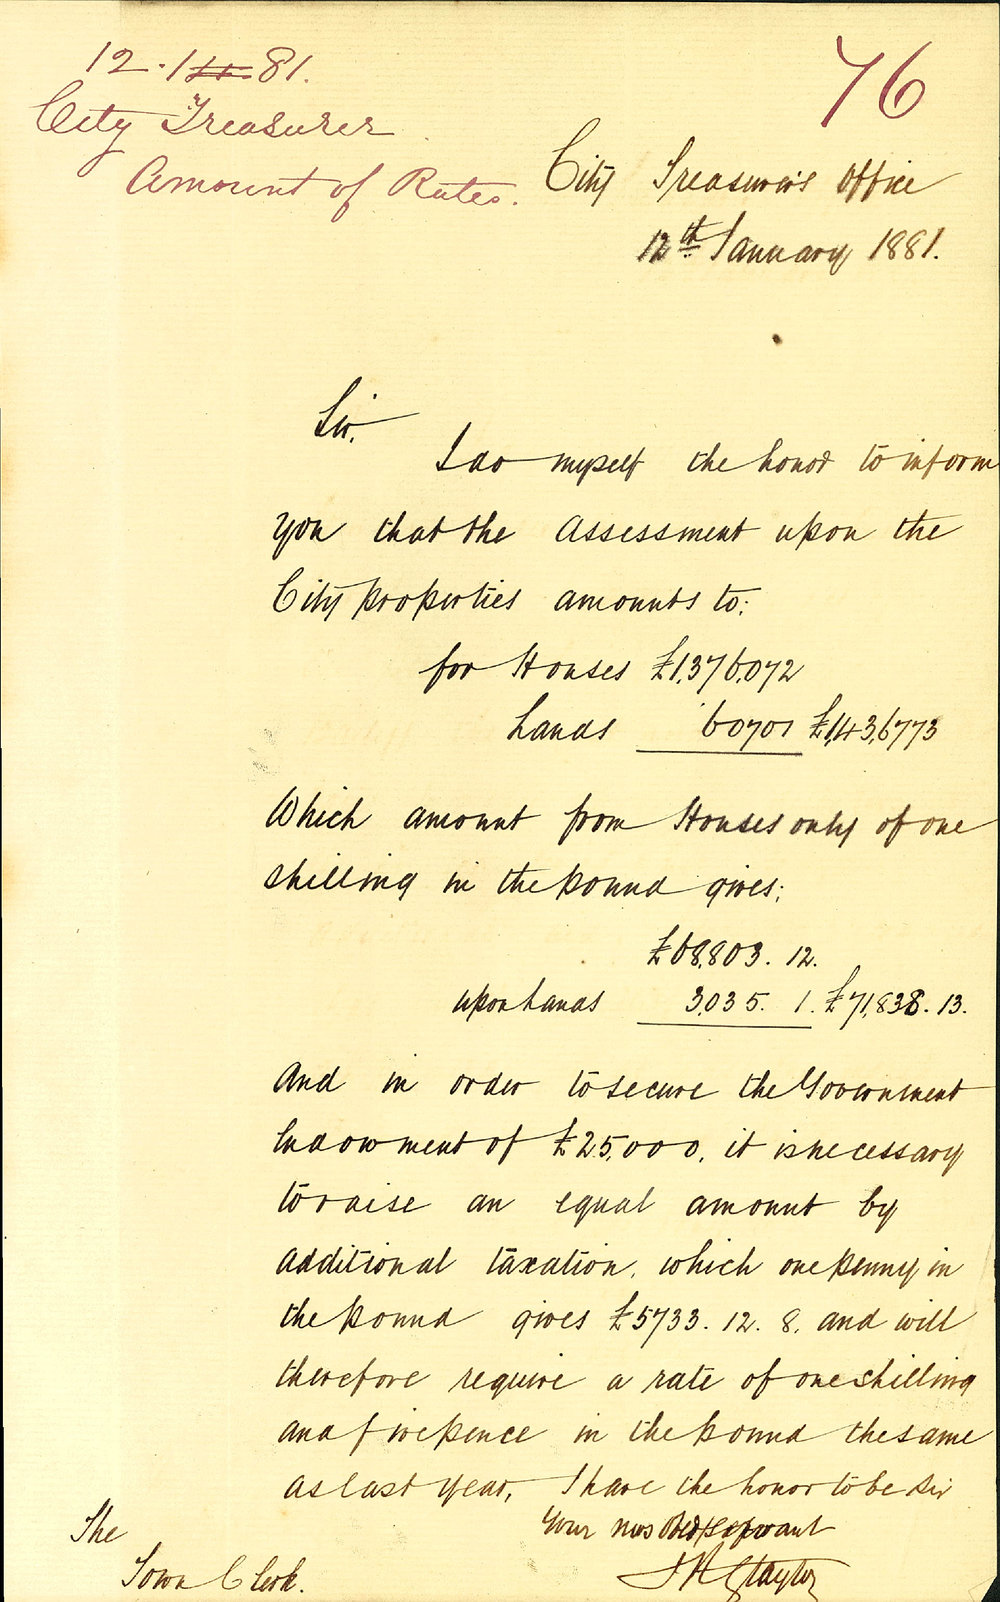 12.1.81.
76
City Treasurer
Amount of Rates.
City Treasurer's Office
12th January 1881.
Sir.
I do myself the honor to inform
you that the Assessment upon the
City properties amounts to:
for Houses £1,376,072
Lands 60701 £1,436,773
Which amount from Houses only of one
shilling in the pound gives;
£68,803. 12.
upon Lands 3,035. 1. £71,838. 13.
And in order to secure the Government
Endowment of £25,000, it is necessary
to raise an equal amount by
additional taxation, which one penny in
the pound gives £5733. 12. 8, and will
therefore require a rate of one shilling
and fivepence in the pound the same
as last year, I have the honor to be Sir
Your mos Obed Servant
The
Town Clerk.